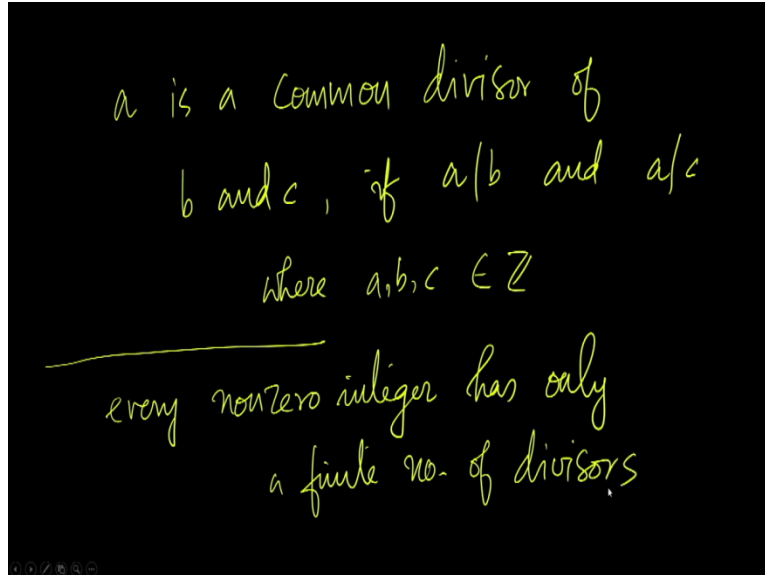 a is a common divisor of
b and c, if a/b and a/c
where a,b,c ∈ ℤ
every nonzero integer has only
a finite no. of divisors